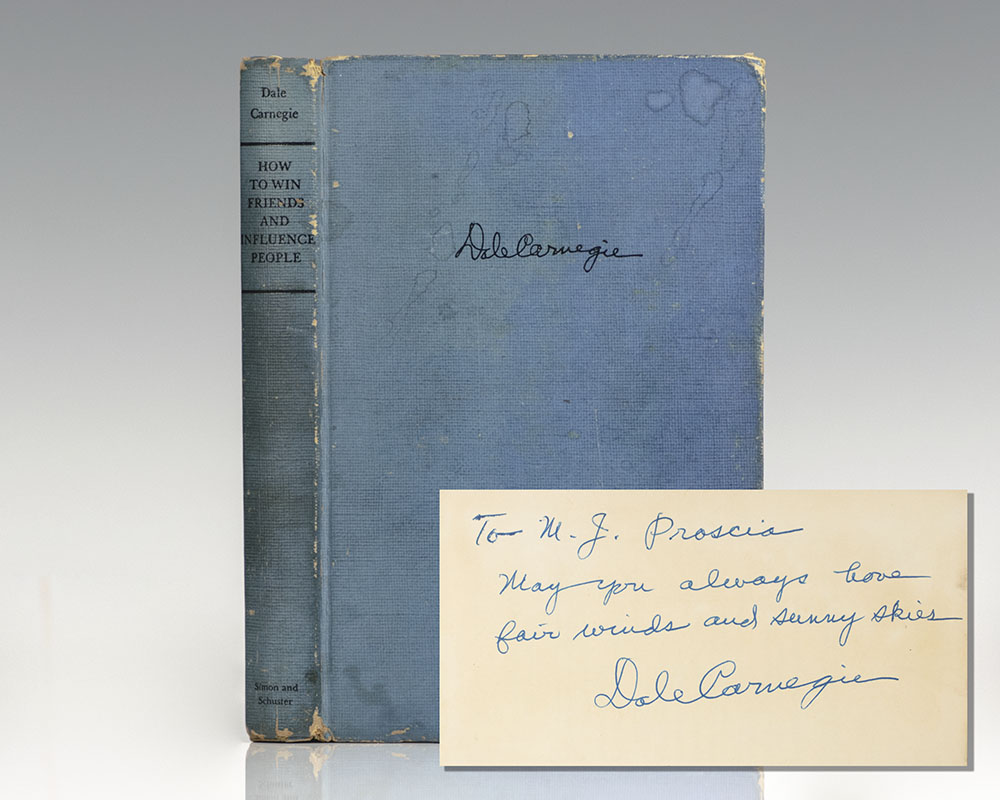 Dale
Carnegie
HOW
TO WIN
FRIENDS
AND
INFLUENCE
PEOPLE
Simon and
Schuster
Dale Carnegie
To M. J. Proscia
May you always have
fair winds and sunny skies
Dale Carnegie